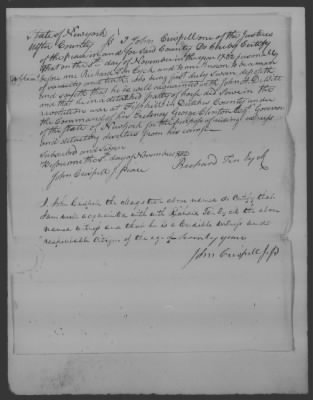 State of New York
Ulster County ss I John Crispell one of the Justices
of the peace in and for said County Do hereby Certify
that on the 5th day of November in the year 1832 personally
appeared before me Richard Ten Eyck and to me known to be a man
of veracity and truth who being just duly sworn deposeth
and sayeth that he is well acquainted with John H. DeWitt
and that he in a detached party of horse did serve in the
revolution war at Fishkill in Dutches County under
the command of his Exelency George Clinton Esqr Governor
of the State of New York for the purpose of
and detecting deserters from his
Subscribed and Sworn
Before me the 5 day of November 1832
John Crispell J Peace
Richard Ten Eyck
I John Crispell the Magistrate above named do Certify that
I am well acquainted with with Richard Ten Eyck the above
named witness and that he is a Credible witness and
respectable Citizen of the age of Seventy years
John Crispell J P